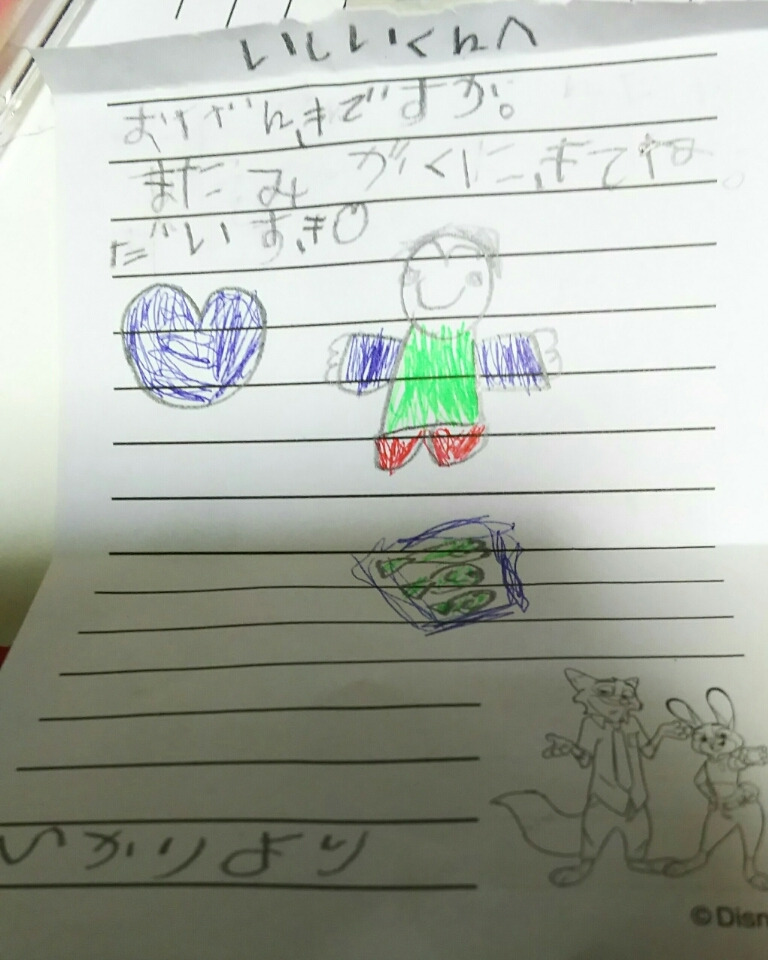 いしいくんへ
おげんきですか。
またみ がくにきてね。
だいすき♡
いかりより
© Disn